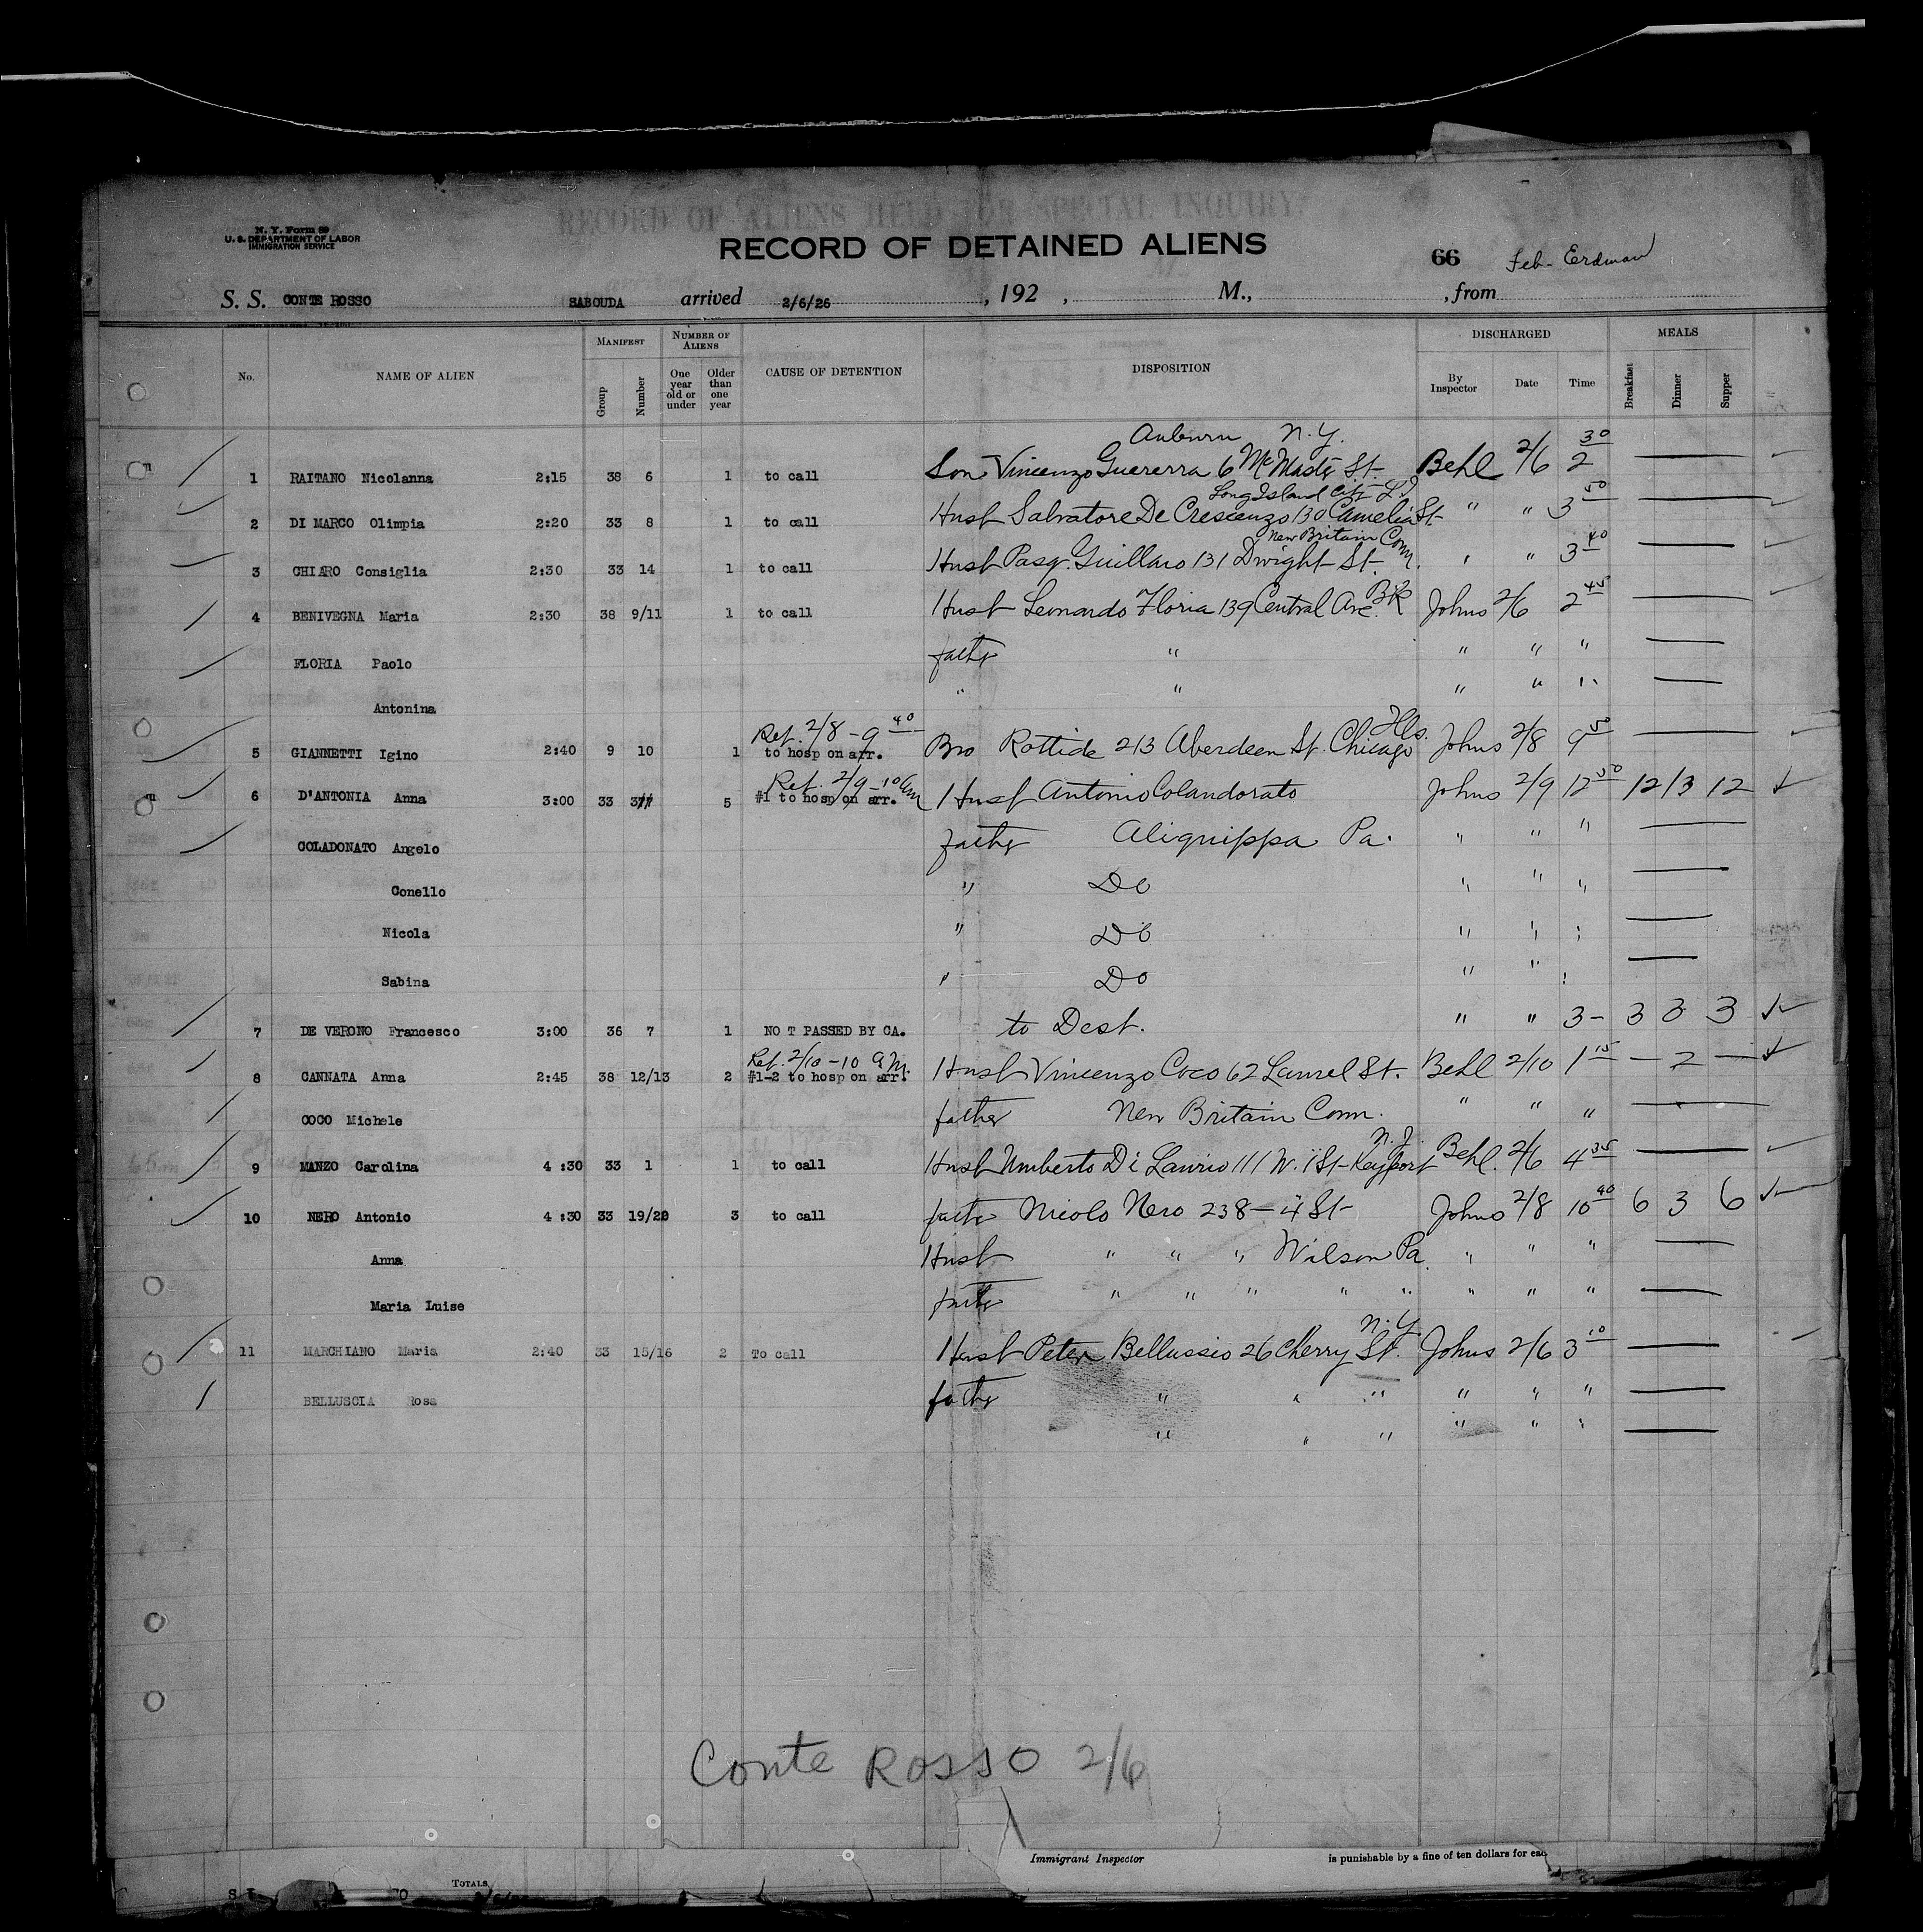 RECORD OF ALIENS HELD FOR SPECIAL INQUIRY
N. Y. Form 89
U. S. DEPARTMENT OF LABOR
IMMIGRATION SERVICE
RECORD OF DETAINED ALIENS
66 Feb- Erdman
S. S. CONTE ROSSO SABOUDA arrived 2/6/26 , 192 , M., , from
No. NAME OF ALIEN MANIFEST Group Number NUMBER OF ALIENS One year old or under Older than one year CAUSE OF DETENTION DISPOSITION DISCHARGED By Inspector Date Time MEALS Breakfast Dinner Supper
Auburn N.Y.
1 RAITANO Nicolanna 2:15 38 6 1 to call Son Vincenzo Guererra 6 McMaster St. Behl 2/6 2 30
Long Island City L.I.
2 DI MARCO Olimpia 2:20 33 8 1 to call Husb Salvatore De Crescenzo 130 Camelia St " " 3 50
New Britain Conn.
3 CHIARO Consiglia 2:30 33 14 1 to call Husb Pasq. Guillaro 131 Dwight St. " " 3 40
4 BENIVEGNA Maria 2:30 38 9/11 1 to call Husb Leonardo Floria 139 Central Ave. Bk Johns 2/6 2 45
FLORIA Paolo father " " " "
Antonina " " " " "
Ret. 2/8 - 9 40
5 GIANNETTI Igino 2:40 9 10 1 to hosp on arr. Bro 213 Aberdeen St. Chicago Hts. Johns 2/8 9 50
Ret. 2/9 - 10 am
6 D'ANTONIA Anna 3:00 33 5 #1 to hosp on arr. Husb Antonio Colandorato Johns 2/9 12 50 12 13 12
COLADONATO Angelo father Aliquippa Pa. " " "
Conello " Do " " "
Nicola " Do " " "
Sabina " Do " " "
7 DE VERONO Francesco 3:00 36 7 1 NO T PASSED BY CA. to Dest. " " 3- 3 3 3
Ret. 2/10 - 10 AM.
8 CANNATA Anna 2:45 38 12/13 2 #1-2 to hosp on arr. Husb Vincenzo Coco 62 Laurel St. Behl 2/10 1 15 - 2 -
COCO Michele father New Britain Conn. " " "
N.J.
9 MANZO Carolina 4 :30 33 1 1 to call Husb Umberto Di Laurio 111 W. 1 St- Keyport Behl. 2/6 4 35
10 NERO Antonio 4 :30 33 19/20 3 to call father Nicolo Nero 238- 4 St- Johns 2/8 10 40 6 3 6
Anna Husb " " " Wilson Pa. " " "
Maria Luise father " " " " " " " "
N.Y.
11 MARCHIANO Maria 2:40 33 15/16 2 To call Husb Peter Bellussio 26 Cherry St. Johns 2/6 3 10
BELLUSCIA Rosa father " " " " " "
" " " " " "
Conte Rosso 2/6
Immigrant Inspector is punishable by a fine of ten dollars for eac
TOTALS